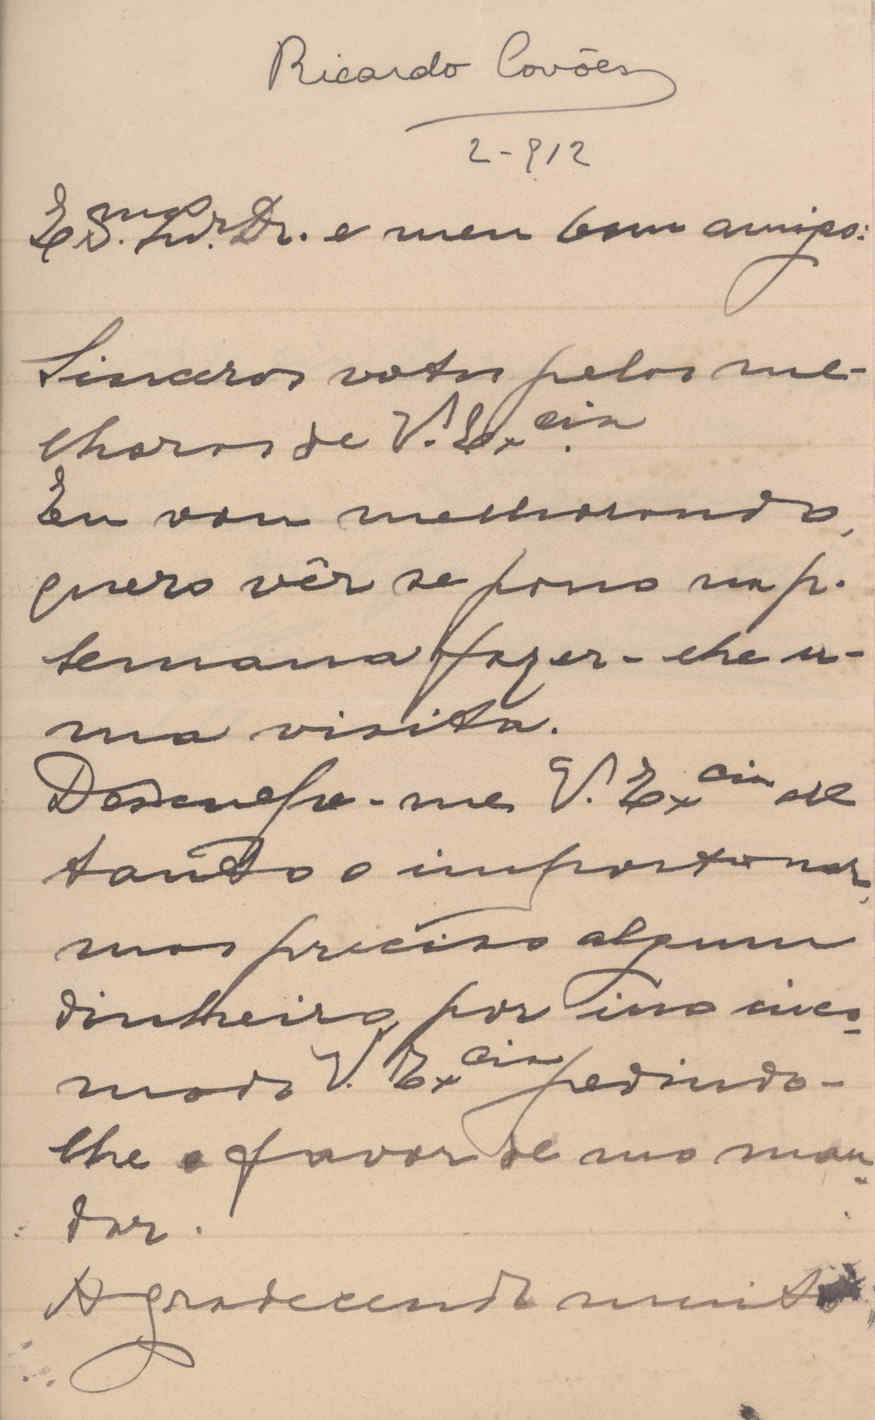 Ricardo Covões
2-912
Ex.mo Snr. Dr. e meu bom amigo:
Sinceros votos pelas me-
lhoras de V. Ex.cia
Eu vou melhorando,
quero vêr se posso na p.
semana fazer-lhe u-
ma visita.
Desculpe-me V. Ex.cia de
tanto o importonar,
mas preciso algum
dinheiro, por isso inco-
modo V. Ex.cia pedindo-
lhe o favor de mo man-
dar.
Agradecendo muito